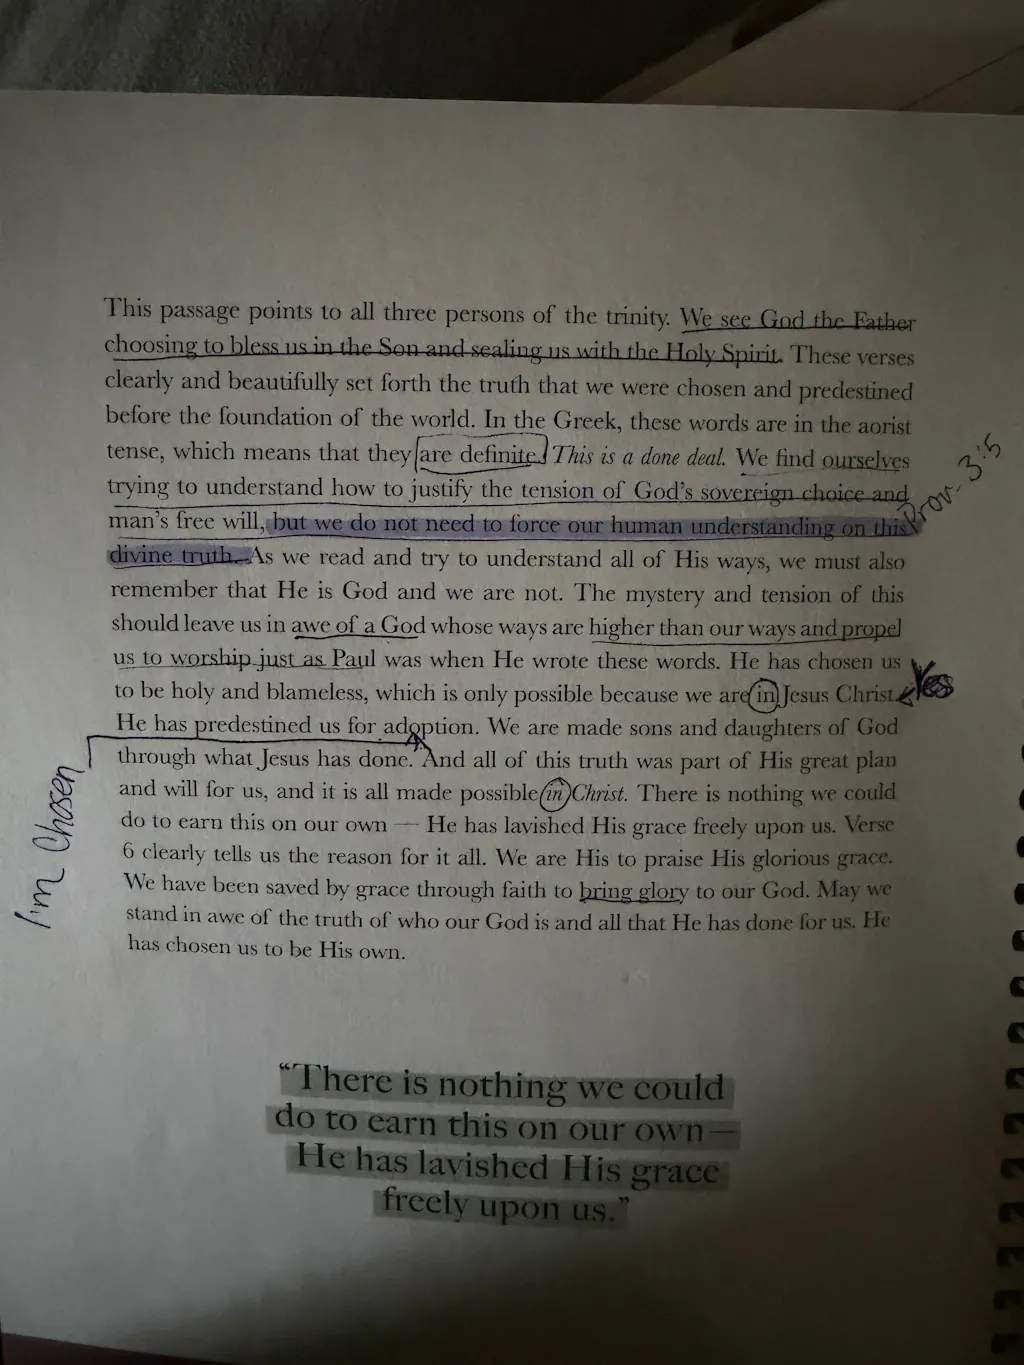 This passage points to all three persons of the trinity. We see God the Father
choosing to bless us in the Son and sealing us with the Holy Spirit. These verses
clearly and beautifully set forth the truth that we were chosen and predestined
before the foundation of the world. In the Greek, these words are in the aorist
tense, which means that they are definite. This is a done deal. We find ourselves
trying to understand how to justify the tension of God's sovereign choice and
man's free will, but we do not need to force our human understanding on this
divine truth. As we read and try to understand all of His ways, we must also
remember that He is God and we are not. The mystery and tension of this
should leave us in awe of a God whose ways are higher than our ways and propel
us to worship just as Paul was when He wrote these words. He has chosen us
to be holy and blameless, which is only possible because we are in Jesus Christ.
He has predestined us for adoption. We are made sons and daughters of God
through what Jesus has done. And all of this truth was part of His great plan
and will for us, and it is all made possible in Christ. There is nothing we could
do to earn this on our own — He has lavished His grace freely upon us. Verse
6 clearly tells us the reason for it all. We are His to praise His glorious grace.
We have been saved by grace through faith to bring glory to our God. May we
stand in awe of the truth of who our God is and all that He has done for us. He
has chosen us to be His own.
Prov. 3:5
Yes
I'm Chosen
“There is nothing we could
do to earn this on our own—
He has lavished His grace
freely upon us.”